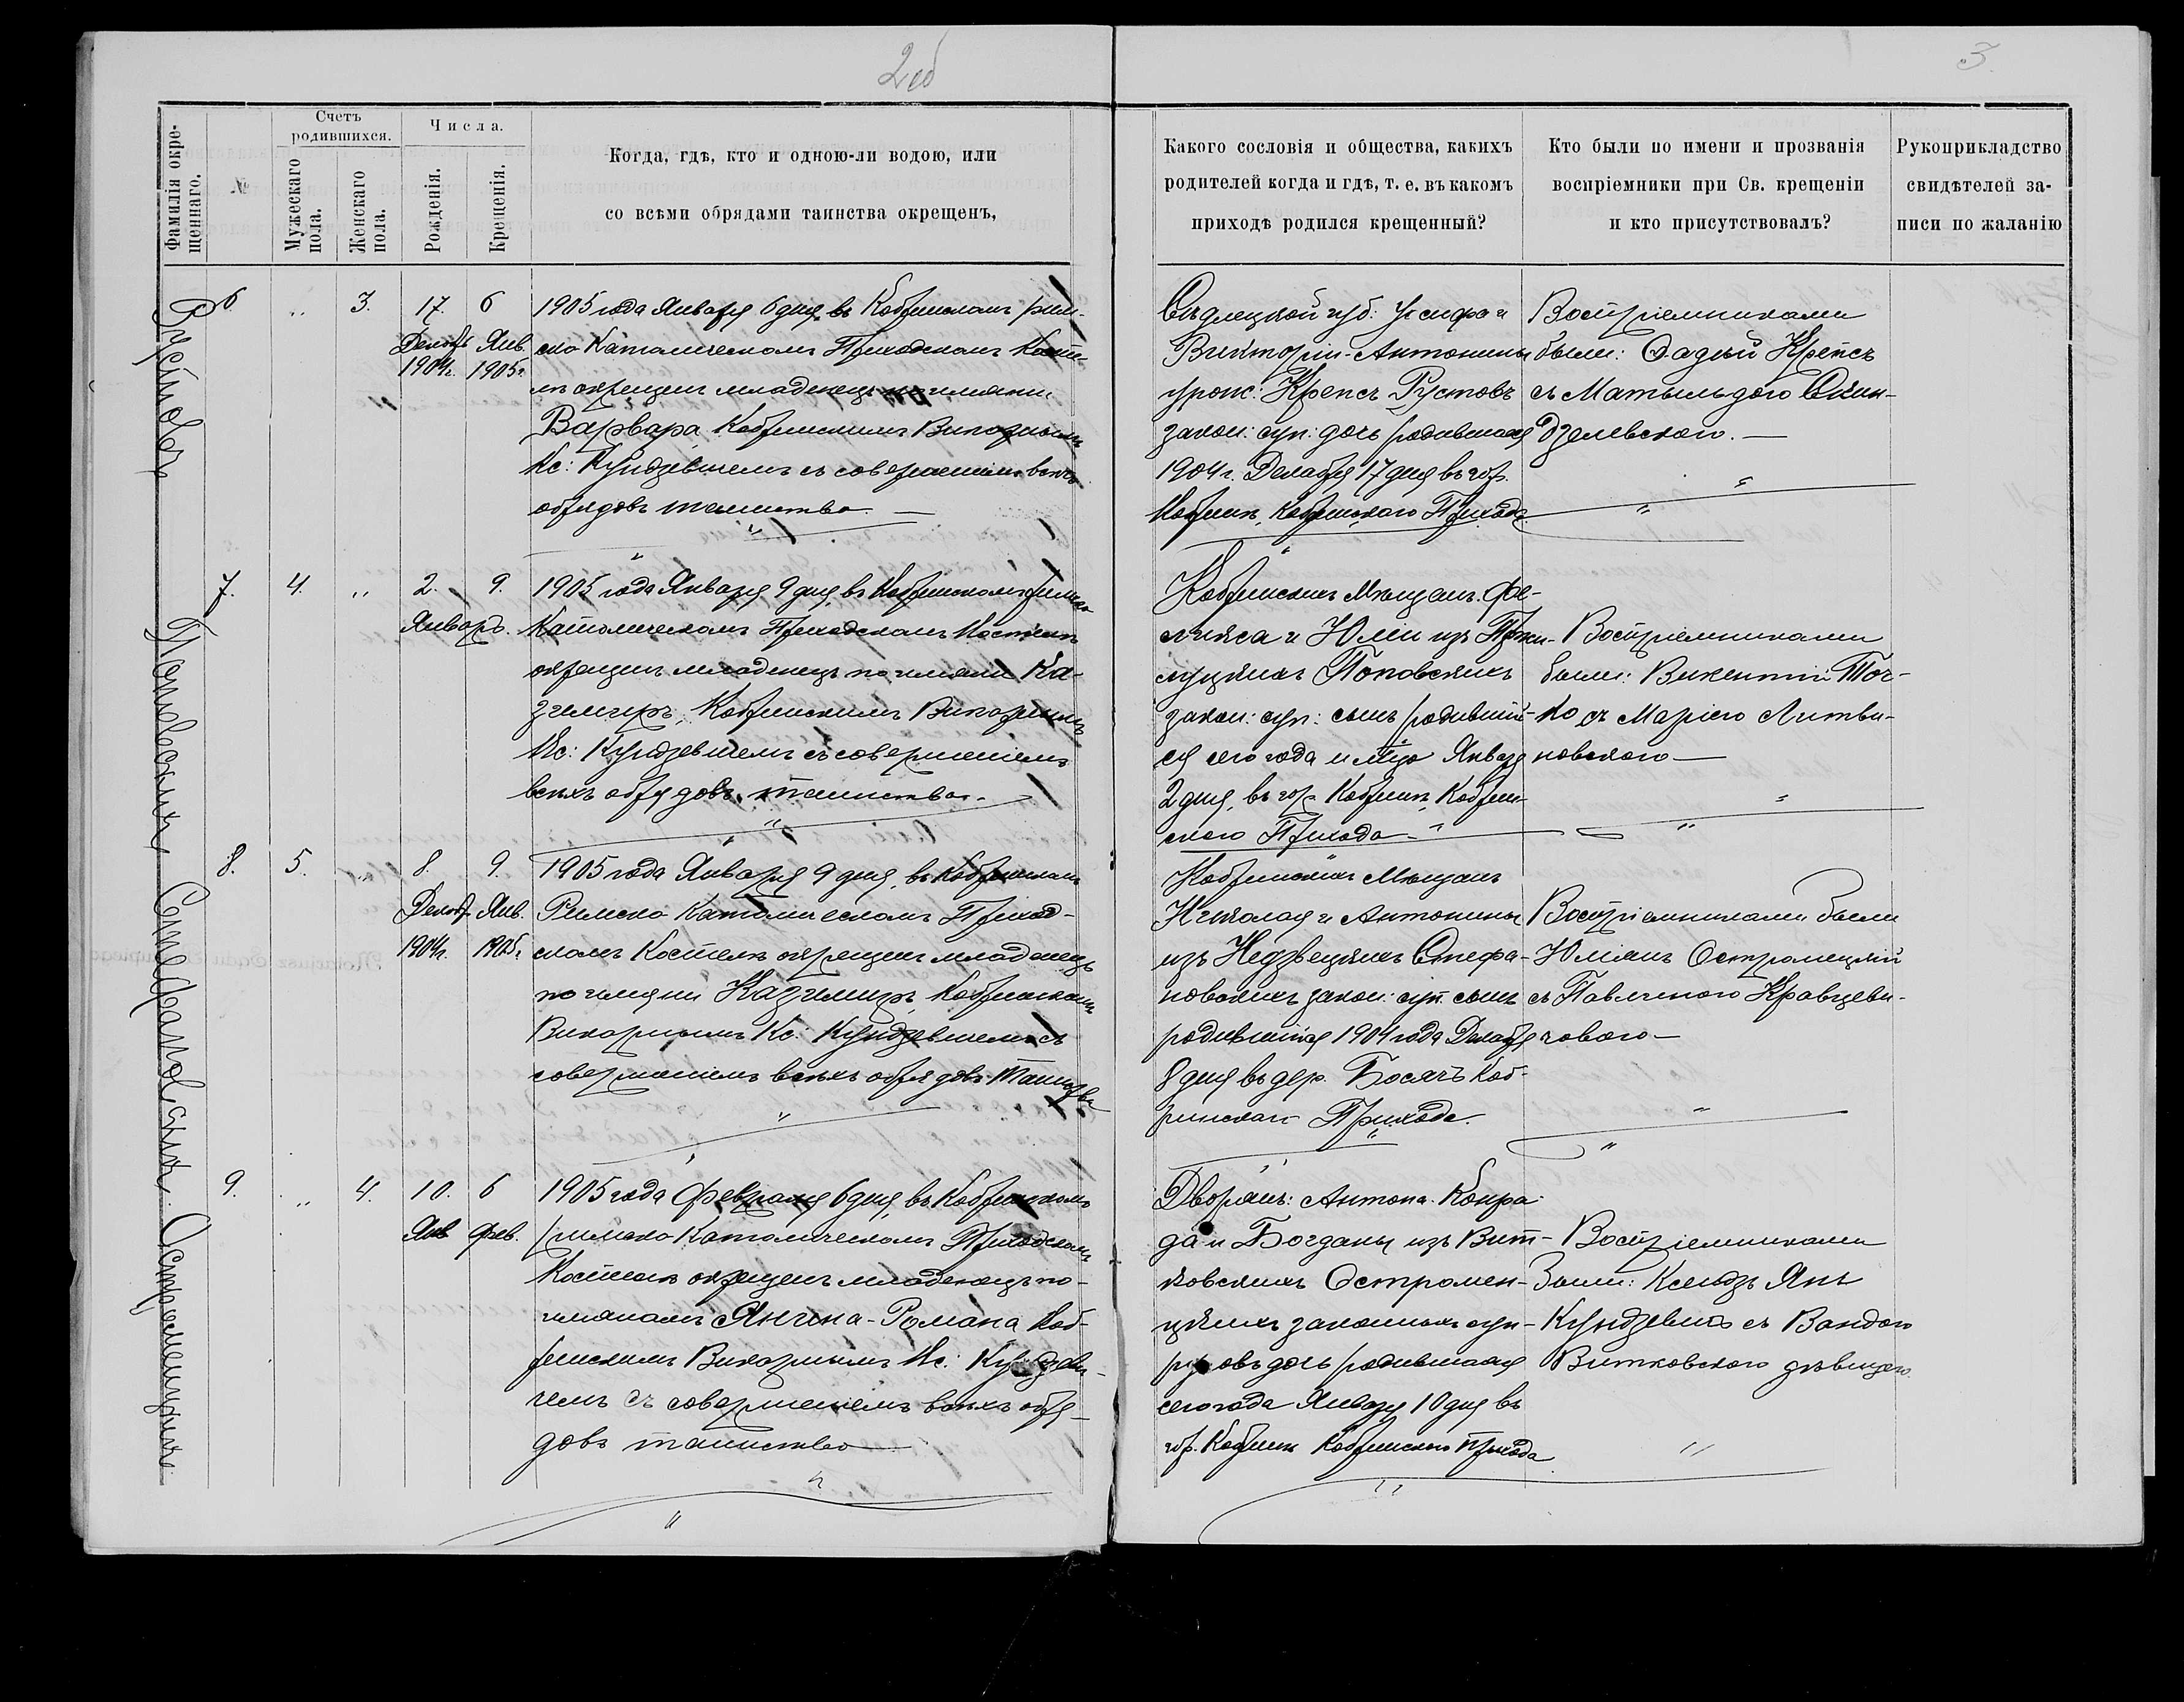 2об
3.
Фамилія окре-
щеннаго.
№
Счетъ
родившихся.
Мужескаго
пола.
Женскаго
пола.
Числа.
Рожденія.
Крещенія.
Когда, гдѣ, кто и одною-ли водою, или
со всѣми обрядами таинства окрещенъ,
Какого сословія и общества, какихъ
родителей когда и гдѣ, т. е. въ какомъ
приходѣ родился крещенный?
Кто были по имени и прозванія
воспріемники при Св. крещеніи
и кто присутствовалъ?
Рукоприкладство
свидѣтелей за-
писи по жаланію
Рустовъ
6
"
3.
17.
Декабр
1904г.
6
Янв.
1905г.
1905 года Января 6 дня, въ Кобринскомъ рим-
ско Католическомъ Приходскомъ Косте-
лѣ окрещенъ младенецъ по имяни
Варвара Кобринскимъ Викарнымъ
Кс: Кундзевичемъ съ совершеніемъ всѣхъ
обрядовъ таинства. —
Сѣдлецкой губ: Іосифа и
Викторіи-Антонины
урож: Крепсъ Рустовъ
закон: суп: дочь родившаяся
1904 г. Декабря 17 дня въ гор.
Кобринѣ, Кобринскаго Прихода
Воспріемниками
были: Фадѣй Крепсъ
съ Матыльдою Скин-
дзелевскою. —
Поповскихъ
7.
4.
"
2.
Январь.
9.
1905 года Января 9 дня, въ Кобринскомъ римско
Католическомъ Приходскомъ Костелѣ
окрещенъ младенецъ по имяни Ка-
зимиръ, Кобринскимъ Викарнымъ
Кс: Кундзевичемъ съ совершеніемъ
всѣхъ обрядовъ таинства. —
Кобринскихъ Мѣщанъ Фе-
ликса и Юліи изъ
Поповскихъ
закон: суп: сынъ родившій-
ся сего года и м-ца Января
2 дня, въ гор. Кобринѣ, Кобрин-
скаго Прихода
Воспріемниками
были: Викентій Точ-
ко съ Маріею Литви-
новскою —
Стефановскихъ
8.
5.
"
8.
Декабр.
1904г.
9.
Янв.
1905г.
1905 года Января 9 дня, въ Кобринскомъ
Римско Католическомъ Приход-
скомъ Костелѣ окрещенъ младенецъ
по имяни Казимиръ, Кобринскимъ
Викарнымъ Кс: Кундзевичемъ съ
совершеніемъ всѣхъ обрядовъ Таинства
Кобринскихъ Мѣщанъ
Николая и Антонины
изъ Недзвецкихъ Стефа-
новскихъ закон: суп: сынъ
родившійся 1904 года Декабря
8 дня въ дер. Босячъ Коб-
ринскаго Прихода.
Воспріемниками были
Юліянъ Остромецкій
съ Павлиною Кравцеви-
човою —
Остромецкихъ
9.
"
4.
10.
Янв
6
Фев.
1905 года Февраля 6 дня, въ Кобринскомъ
римско Католическомъ Приходскомъ
Костелѣ окрещенъ младенецъ по
имянамъ Янина-Романа Коб-
ринскимъ Викарнымъ Кс: Кундзеви-
чемъ съ совершеніемъ всѣхъ обря-
довъ таинства —
Дворянъ: Антона-Конра-
да и Богданы изъ Вит-
ковскихъ Остромец-
цкихъ законныхъ суп-
руговъ дочь родившаяся
сего года Января 10 дня въ
гор. Кобринѣ Кобринскаго Прихода
Воспріемниками
были: Ксендзъ Янъ
Кундзевичъ съ Вандою
Витковскою дѣвицею.